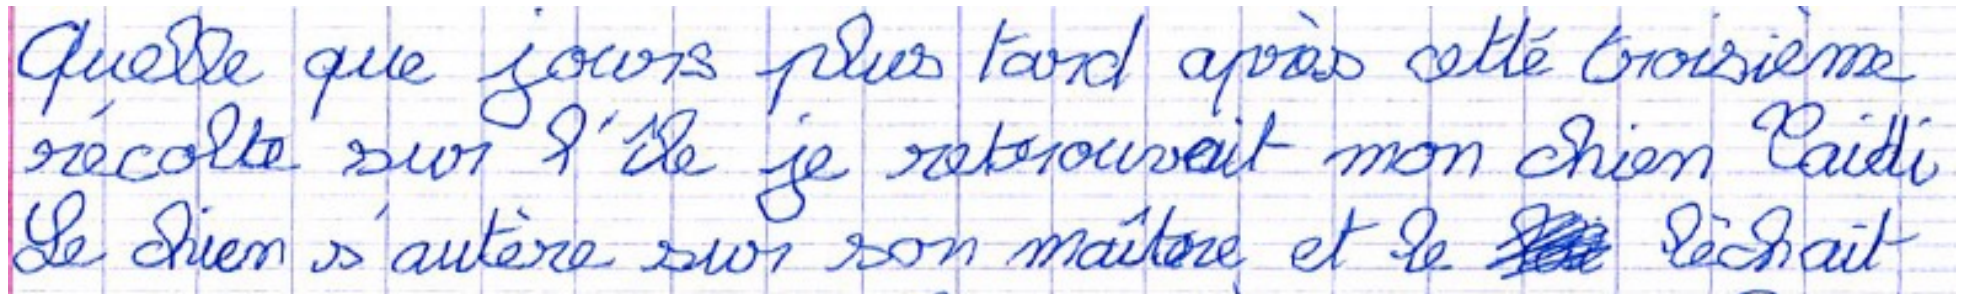 Quelle que jours plus tard après cetté troisième
récolte sur l'île je retrouvait mon chien
Le chien s'autère sur son maître et le lèchait